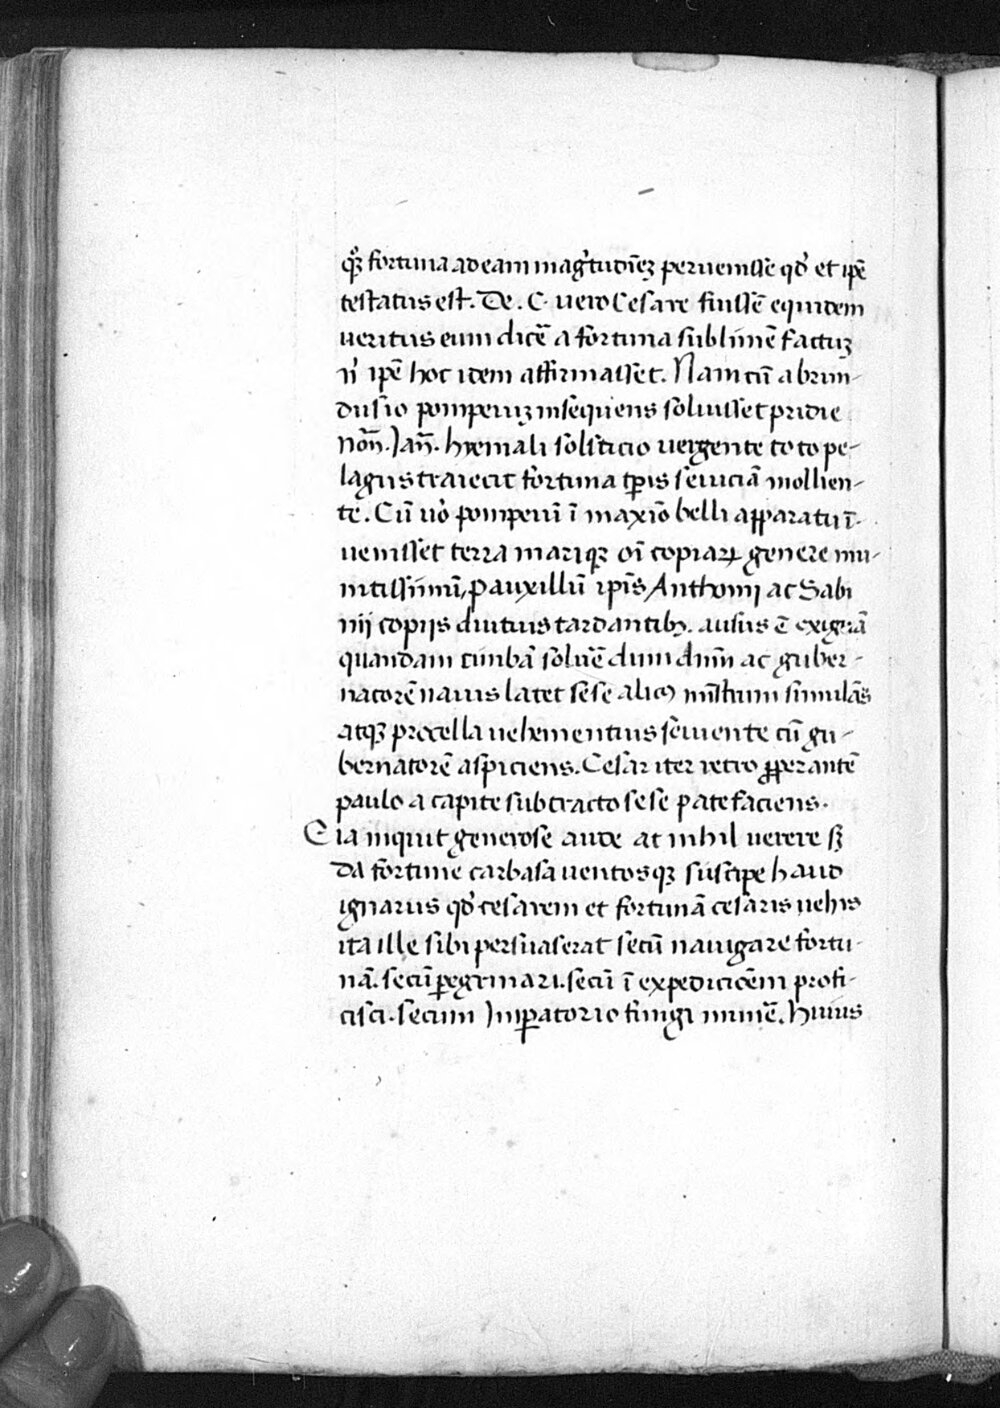 qꝫ fortuna ad eam magͥtudīeꝫ pervenisse qd̛ et ip̄e
testatus est. De. C. vero Cesare fuissē equidem
veritus eum dicē a fortuna sublimē factuꝫ
nͥ ip̄e hoc idem affirmasset. Nam cū a brun-
dusio pompeiuꝫ insequens solvisset pridie
nōn. Jan̄. hyemali solsticio vergente toto pe-
lagus traiecit fortuna tp̄is seviciā mollien-
te. Cū vͦo pompeiū ī maxīo belli apparatu ī-
venisset terra mariqꝫ oī copiaꝝ genere mu-
nitissimū, pauxillū ip̄is Anthonij ac Sabi
nij copijs diutius tardantibꝫ. ausus ē exiguā
quandam cimbā solvē dum dn̄m ac guber-
natorē navis latet sese alicꝰ mīstrum simulās
atqꝫ procella vehementius seviente cū gu-
bernatorē aspiciens. Cesar iter retro ꝓperantē
paulo a capite subtracto sese patefaciens.
Eia inquit generose aude at nihil verere sꝫ
da fortune carbasa ventosqꝫ suscipe haud
ignarus qd̛ cesarem et fortunā cesaris vehis
ita ille sibi persuaserat secū navigare fortu-
nā. secū ꝑegrinari. secū ī expedicōem profi-
cisci. secum Imꝑatorio fungi munē. Huius